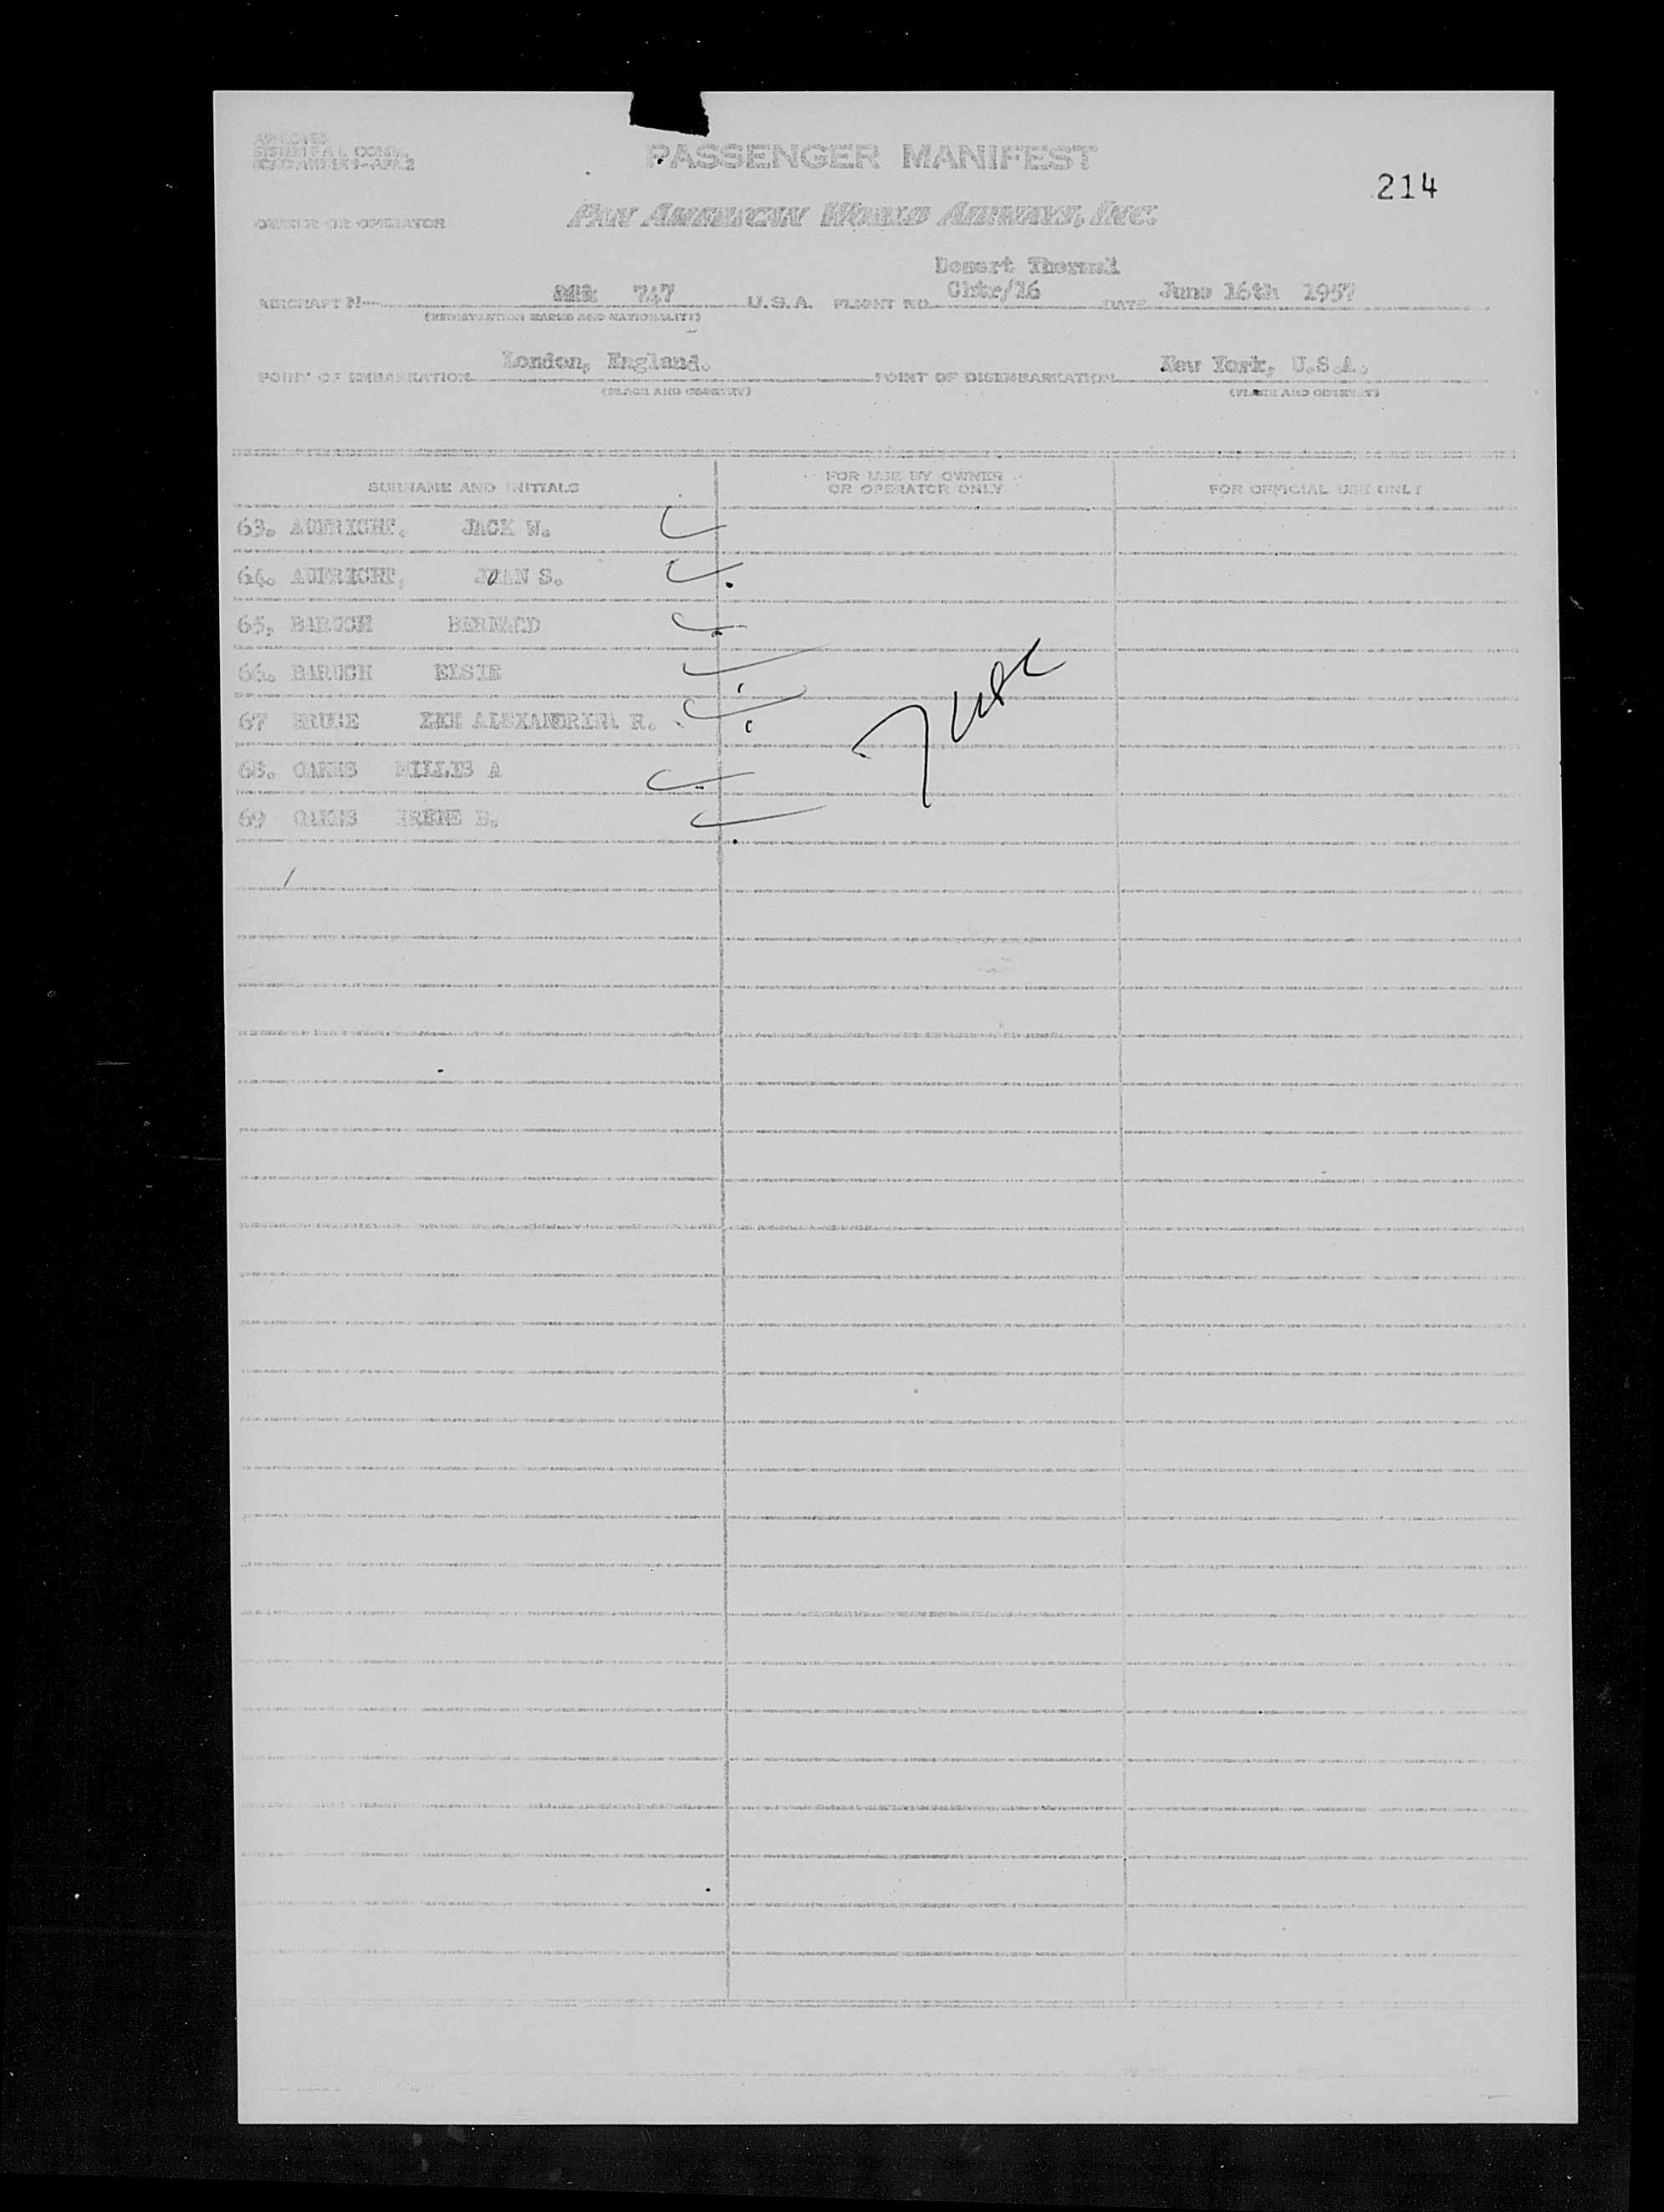 APPROVED
PASSENGER MANIFEST
214
OWNER OR OPERATOR
PAN AMERICAN WORLD AIRWAYS, INC.
Desert Thermal
AIRCRAFT N 747 U.S.A. FLIGHT NO. Chtr/16 DATE June 16th 1957
(REGISTRATION MARKS AND NATIONALITY)
POINT OF EMBARKATION London, England. POINT OF DISEMBARKATION New York, U.S.A.
(PLACE AND COUNTRY) (PLACE AND COUNTRY)
SURNAME AND INITIALS FOR USE BY OWNER OR OPERATOR ONLY FOR OFFICIAL USE ONLY
63. JACK W.
64. S.
65. BARUCH BERNARD
66. BARUCH ELSIE
67 BRUCE R.
68. OAKES A
69 OAKES IRENE